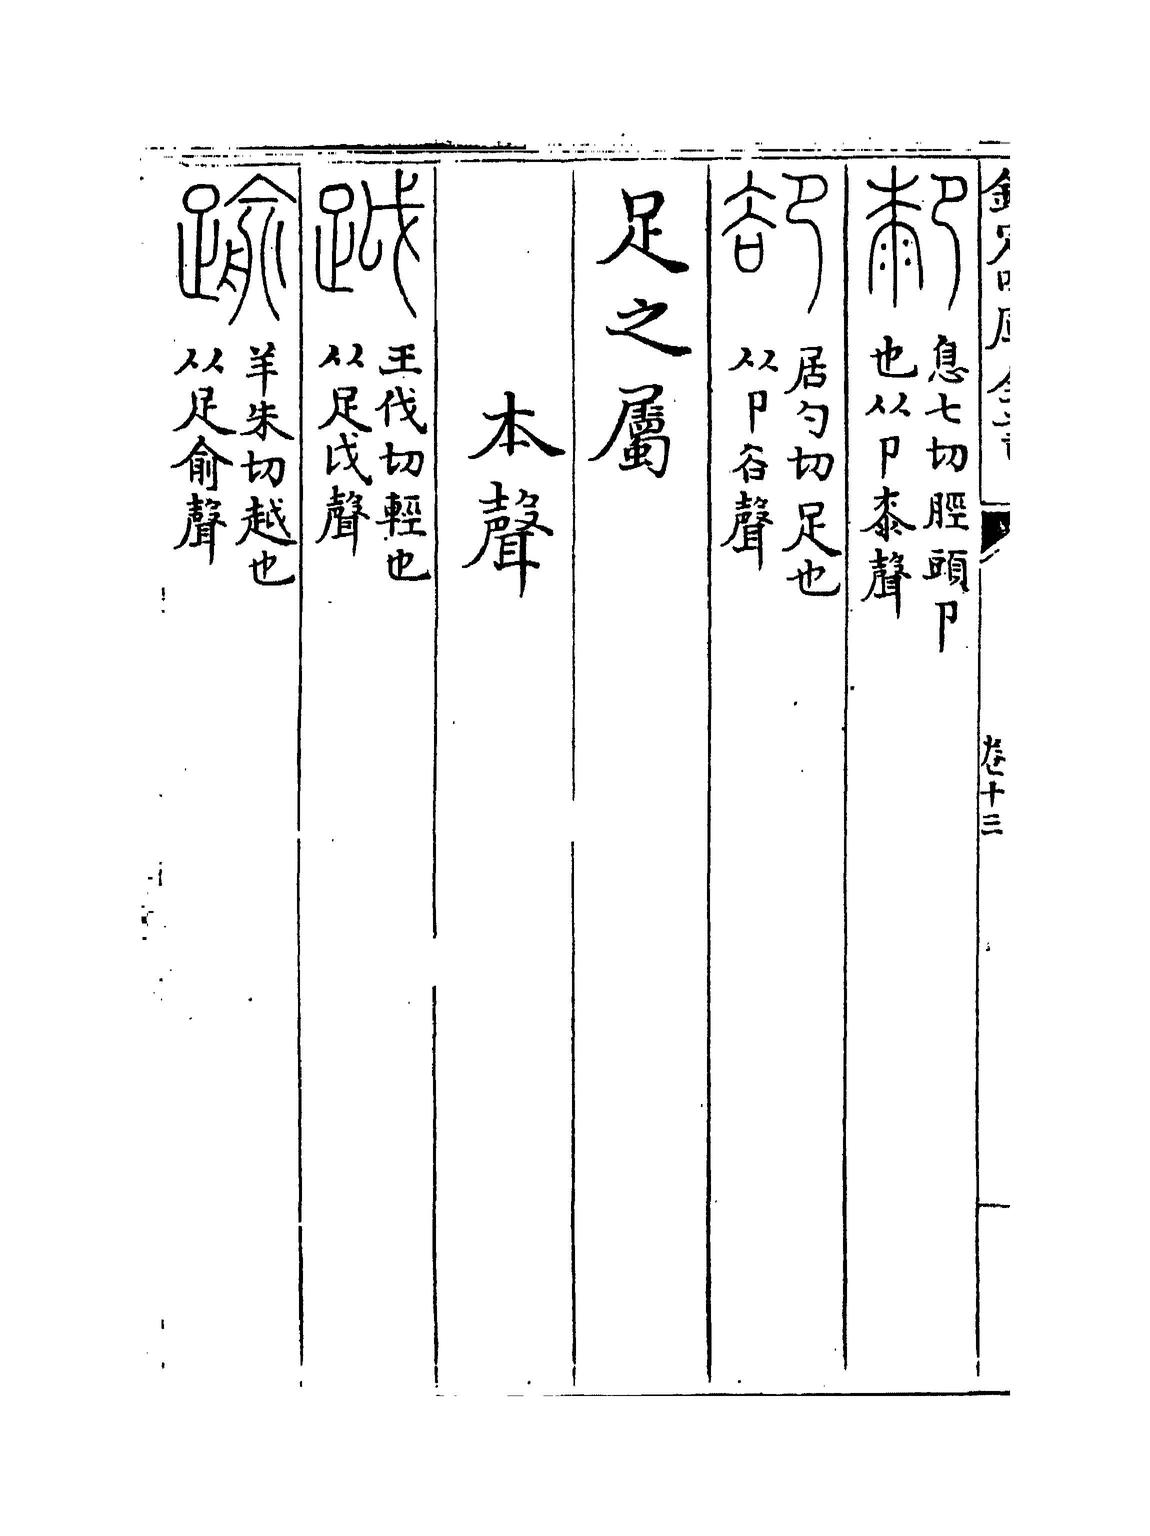 欽定四庫全書
卷十三
厀息七切脛頭卩
也从卩桼聲
卻居勺切足也
从卩谷聲
足之屬
本聲
䟠王伐切輕也
从足戉聲
踰羊朱切越也
从足俞聲